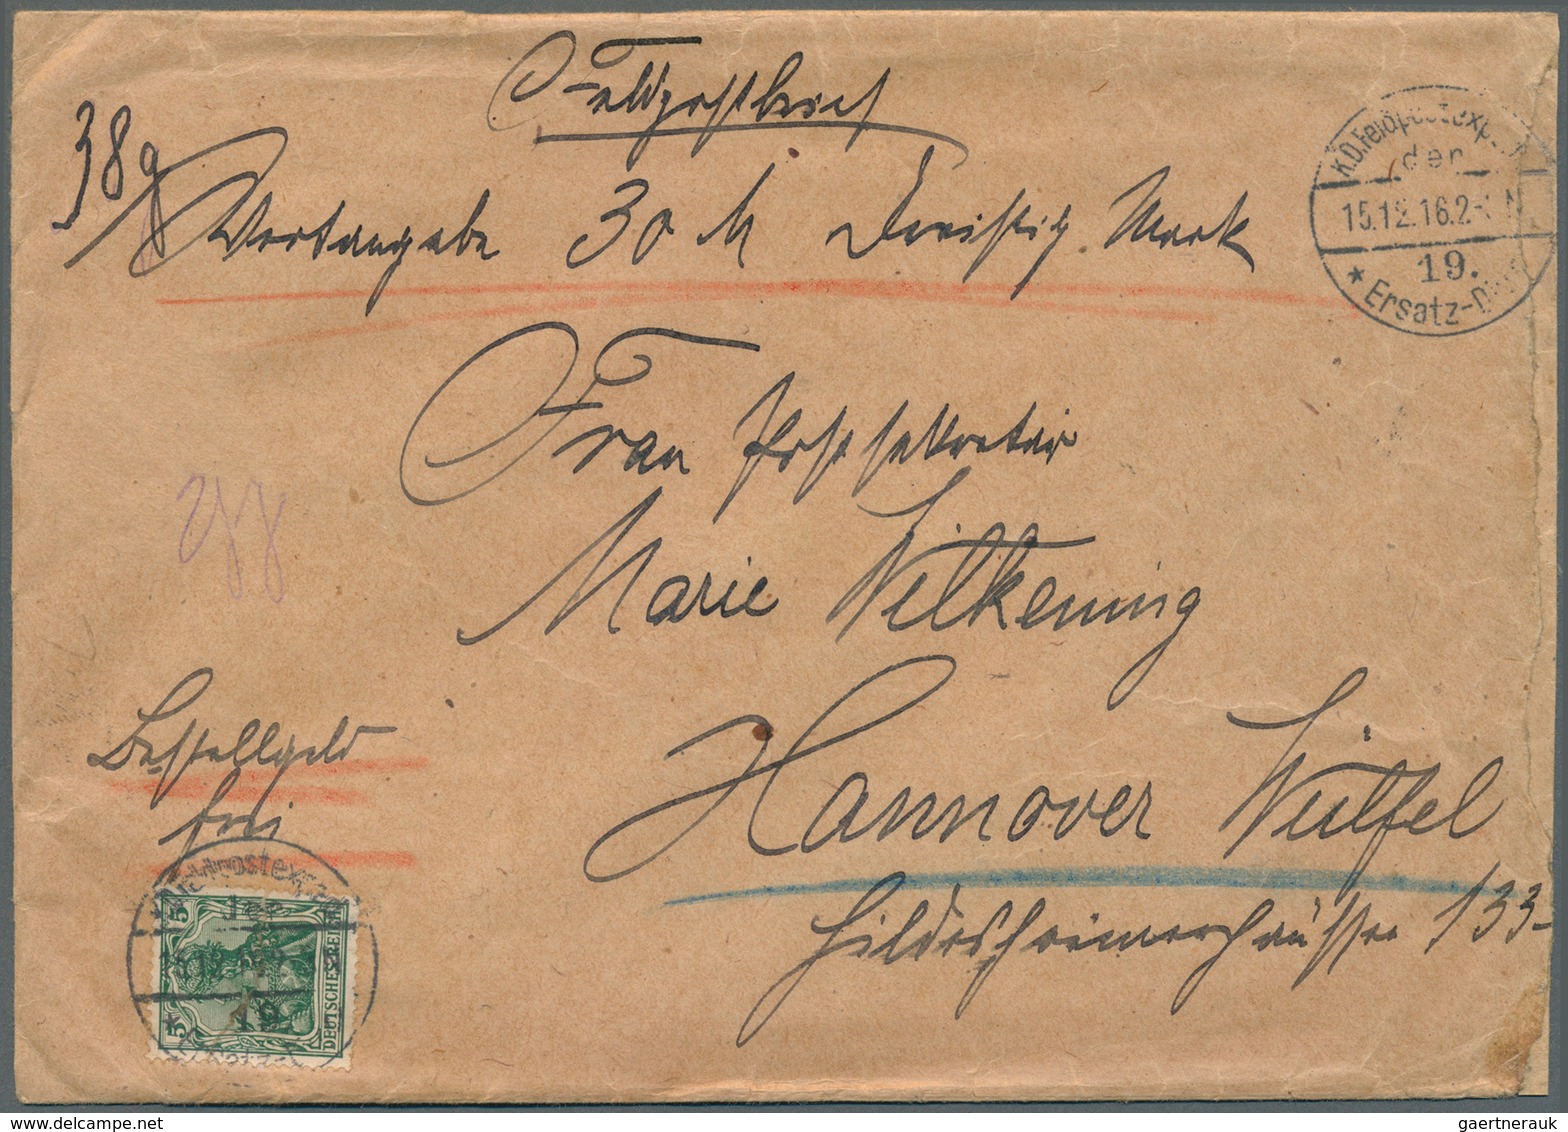 Feldpostbrief
38 g
Wertangabe 30 M Dreißig Mark
K.D.Feldpostexp.
der
15.12.16.2-
19.
* Ersatz-Div.
Frau Postsekretär
Marie Wilkening
Bestellgeld
frei
Hannover Wülfel
Hildesheimerchaussee 133
5
DEUTSCHES REICH
5
der
19
gaertnerauk